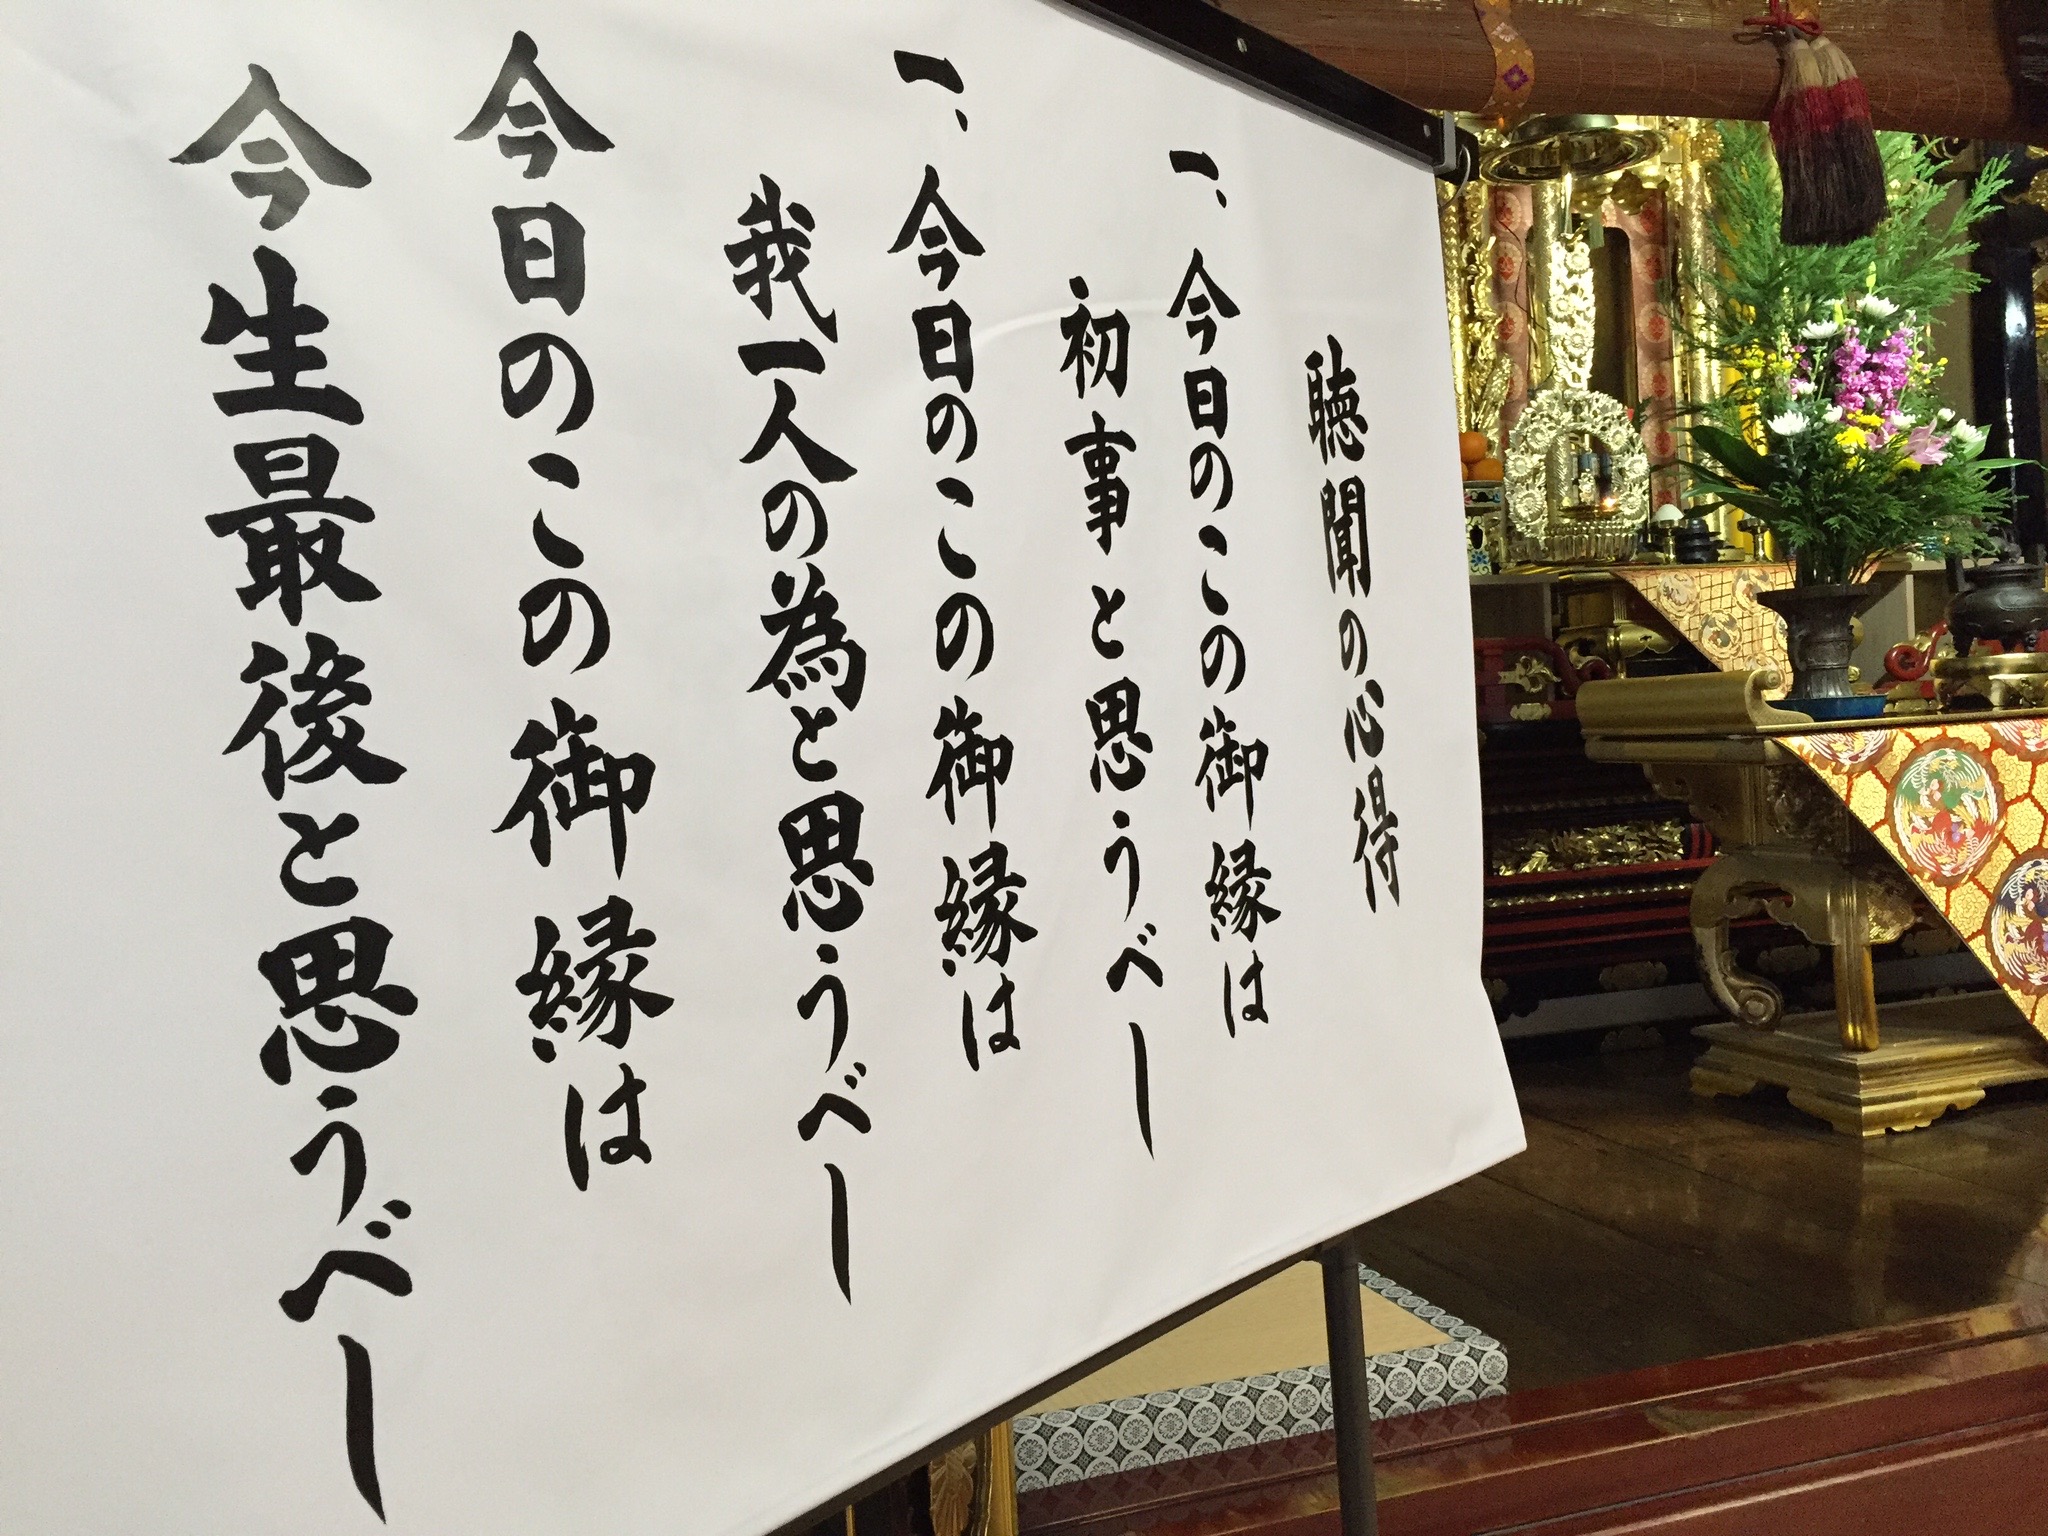 聴聞の心得
一、今日のこの御縁は
初事と思うべし
一、今日のこの御縁は
我一人の為と思うべし
今日のこの御縁は
今生最後と思うべし